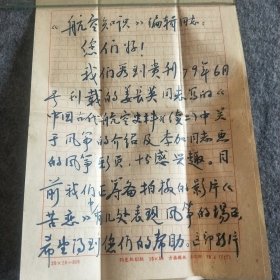 《航空知识》编辑同志：
您们好！
我们看到贵刊79年6月
号刊载的姜长英同志写的《
中国古代航空史料》（续二）中关
于风筝的介绍及李加同志忠
的风筝彩页，十分感兴趣。目
前我们正筹备拍摄的影片《
苦恋》中有几处表现风筝的场面，
希望得到您们的帮助。